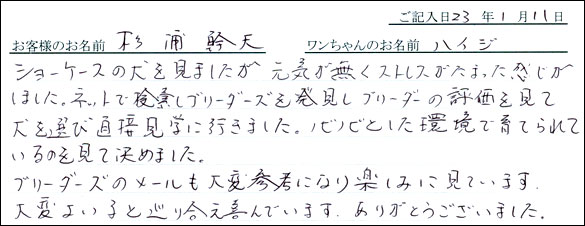 ご記入日23年1月11日
お客様のお名前 杉浦幹夫 ワンちゃんのお名前 ハイジ
ショーケースの犬を見ましたが元気が無くストレスがたまった感じが
しました。ネットで検索しブリーダーズを発見しブリーダーの評価を見て
犬を選び直接見学に行きました。ノビノビとした環境で育てられて
いるのを見て決めました。
ブリーダーズのメールも大変参考になり楽しみに見ています.
大変よい子と巡り合え喜んでいます. ありがとうございました.